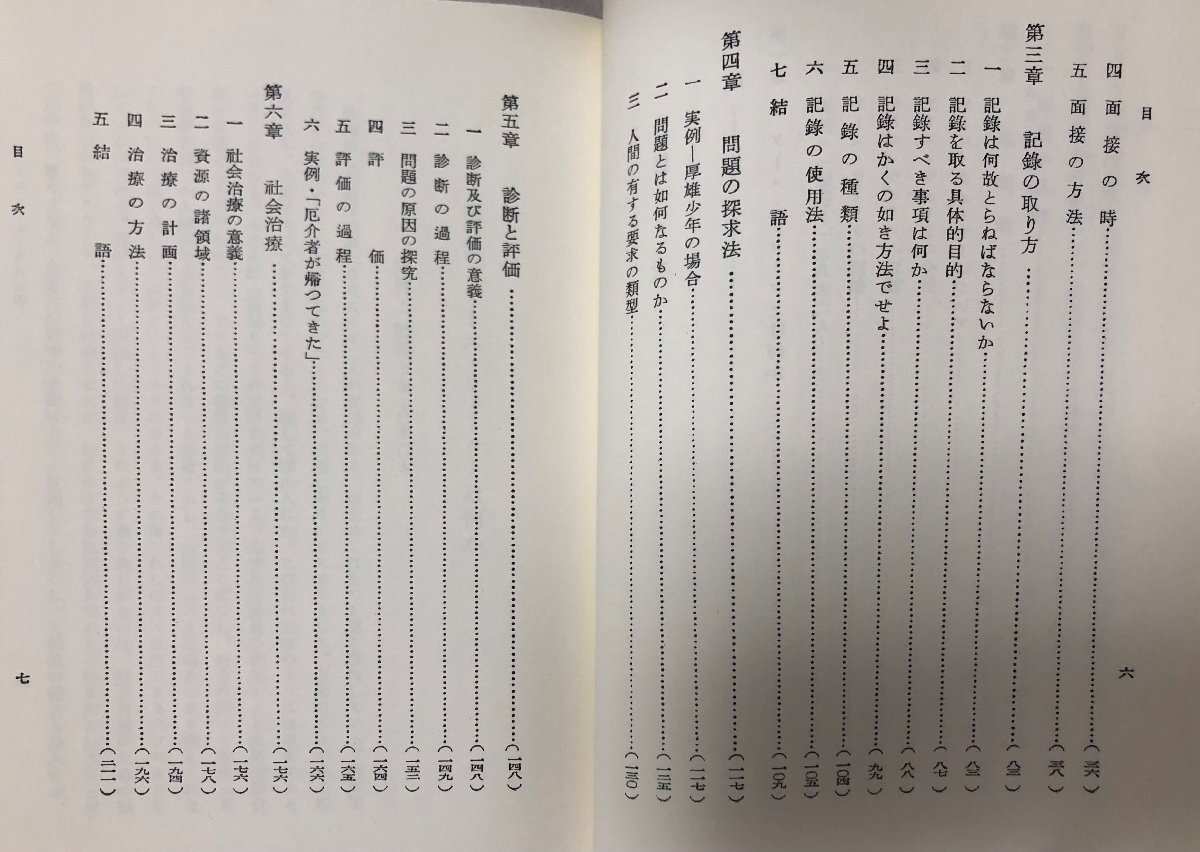 目次
四 面接の時……(三六)
五 面接の方法……(三八)
第三章 記録の取り方……(八三)
一 記録は何故とらねばならないか……(八三)
二 記録を取る具体的目的……(八七)
三 記録すべき事項は何か……(八八)
四 記録はかくの如き方法でせよ……(九九)
五 記録の種類……(一〇四)
六 記録の使用法……(一〇五)
七 結語……(一〇九)
第四章 問題の探求法……(一一七)
一 実例―厚雄少年の場合……(一一七)
二 問題とは如何なるものか……(一二五)
三 人間の有する要求の類型……(一三〇)
六
第五章 診断と評価……(一四八)
一 診断及び評価の意義……(一四八)
二 診断の過程……(一四九)
三 問題の原因の探究……(一五二)
四 評価……(一六四)
五 評価の過程……(一六五)
六 実例・「厄介者が帰つてきた」……(一六六)
第六章 社会治療……(一七六)
一 社会治療の意義……(一七六)
二 資源の諸領域……(一七八)
三 治療の計画……(一九四)
四 治療の方法……(一九六)
五 結語……(二一一)
目次
七